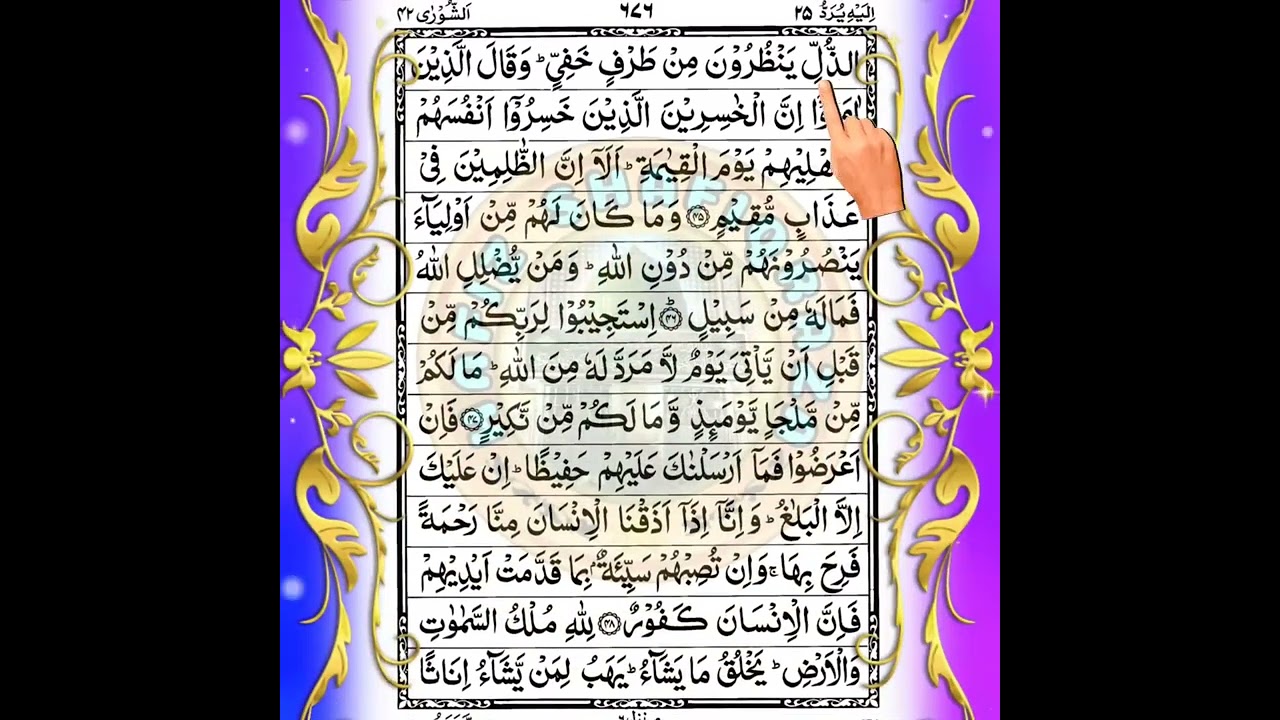 اِلَيْهِ يُرَدُّ ٢٥ ٦٧٦ اَلشُّوْرٰى ٤٢
الذُّلِّ يَنْظُرُوْنَ مِنْ طَرْفٍ خَفِيٍّ ؕ وَقَالَ الَّذِيْنَ
اِنَّ الْخٰسِرِيْنَ الَّذِيْنَ خَسِرُوْۤا اَنْفُسَهُمْ
يَوْمَ الْقِيٰمَةِ ؕ اَلَاۤ اِنَّ الظّٰلِمِيْنَ فِيْ
عَذَابٍ مُّقِيْمٍ ﴿٤٥﴾ وَمَا كَانَ لَهُمْ مِّنْ اَوْلِيَآءَ
يَنْصُرُوْنَهُمْ مِّنْ دُوْنِ اللّٰهِ ؕ وَمَنْ يُّضْلِلِ اللّٰهُ
فَمَا لَهٗ مِنْ سَبِيْلٍ ؕ﴿٤٦﴾ اِسْتَجِيْبُوْا لِرَبِّكُمْ مِّنْ
قَبْلِ اَنْ يَّاْتِيَ يَوْمٌ لَّا مَرَدَّ لَهٗ مِنَ اللّٰهِ ؕ مَا لَكُمْ
مِّنْ مَّلْجَاٍ يَّوْمَئِذٍ وَّمَا لَكُمْ مِّنْ نَّكِيْرٍ ﴿٤٧﴾ فَاِنْ
اَعْرَضُوْا فَمَاۤ اَرْسَلْنٰكَ عَلَيْهِمْ حَفِيْظًا ؕ اِنْ عَلَيْكَ
اِلَّا الْبَلٰغُ ؕ وَاِنَّاۤ اِذَاۤ اَذَقْنَا الْاِنْسَانَ مِنَّا رَحْمَةً
فَرِحَ بِهَا ۚ وَاِنْ تُصِبْهُمْ سَيِّئَةٌۢ بِمَا قَدَّمَتْ اَيْدِيْهِمْ
فَاِنَّ الْاِنْسَانَ كَفُوْرٌ ﴿٤٨﴾ لِلّٰهِ مُلْكُ السَّمٰوٰتِ
وَالْاَرْضِ ؕ يَخْلُقُ مَا يَشَآءُ ؕ يَهَبُ لِمَنْ يَّشَآءُ اِنَاثًا